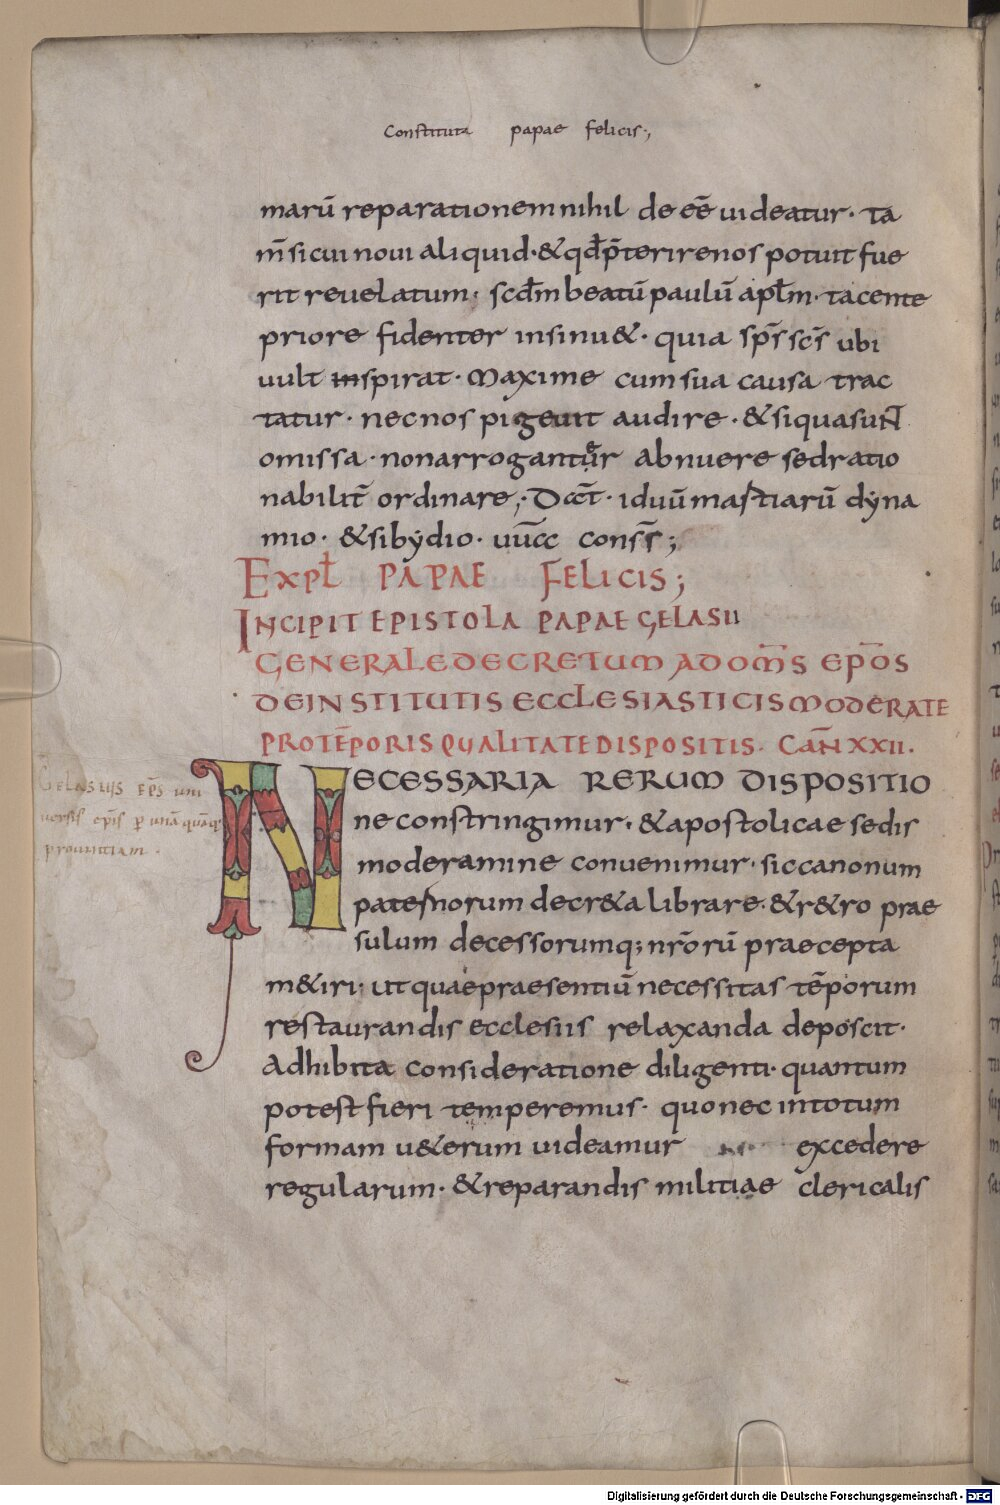 Constituta papae felicis;
marū reparationem nihil deeē uideatur · ta
m̄ si cui noui aliquid · & qd̄ p̄terire nos potuit fue
rit reuelatum · scd̄m beatū paulū apl̄m · tacente
priore fidenter insinu& · quia sp̄s sc̄s ubi
uult inspirat · Maxime cum sua causa trac
tatur · nec nos pigeuit audire · & siqua sunt
omissa · non arrogantur abnuere sed ratio
nabilit̄ ordinare; Dat̄ · iduū martiarū dyna
mio · & sibydio · uūcc conss̄;
EXPL̄ PAPAE FELICIS;
INCIPIT EPISTOLA PAPAE GELASII
GENERALE DECRETUM AD OM̄S EP̄OS
DE INSTITUTIS ECCLESIASTICIS MODERATE
PRO TĒPORIS QUALITATE DISPOSITIS · CAN̄ XXII ·
GELASIUS EP̄S uni
uersis ep̄is p unā quāq;
prouintiam ·
NECESSARIA RERUM DISPOSITIO
ne constringimur · & apostolicae sedis
moderamine conuenimur · sic canonum
paternorum decr&a librare · & r&ro prae
sulum decessorumq; nr̄orū praecepta
m&iri · ut quae praesentiū necessitas tēporum
restaurandis ecclesiis relaxanda deposcit ·
Adhibita consideratione diligenti · quantum
potest fieri temperemus · quo nec in totum
formam u&erum uideamur excedere
regularum · & reparandis militiae clericalis
Digitalisierung gefördert durch die Deutsche Forschungsgemeinschaft - DFG